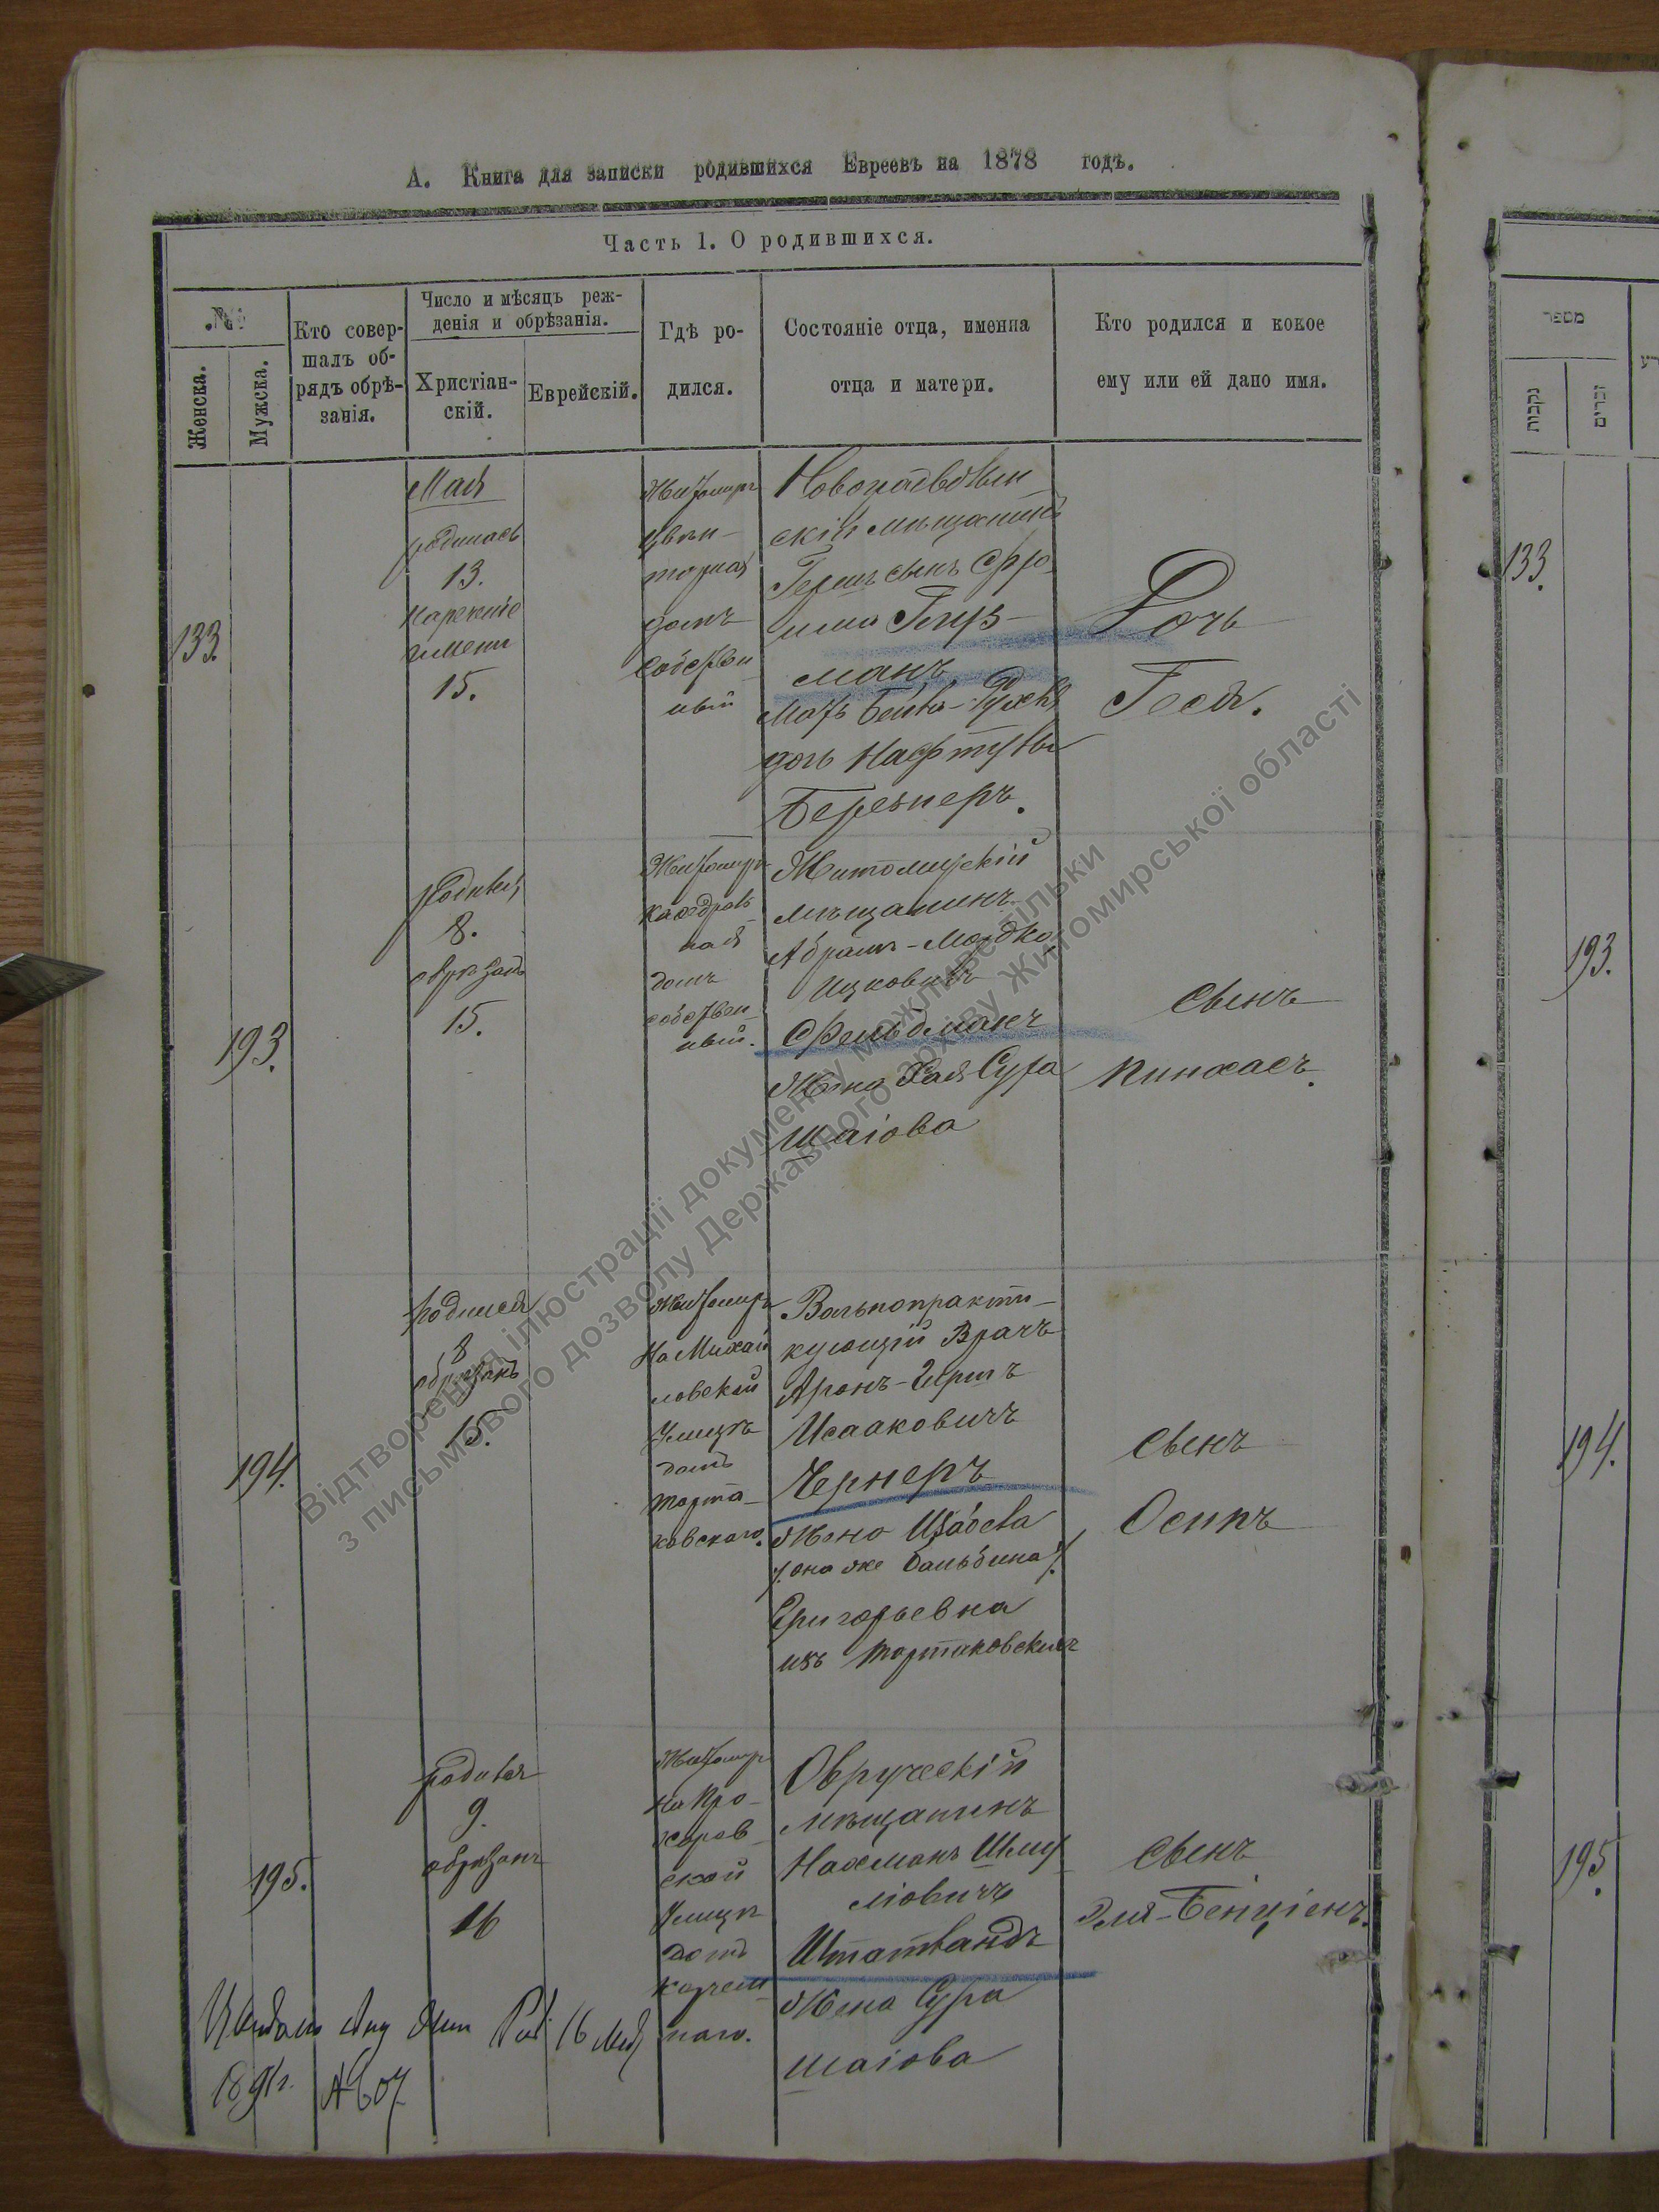 А. Книга для записки родившихся Евреевъ на 1878 годъ.
Часть 1. О родившихся.
№
Женска.
Мужска.
Кто совер-
шалъ об-
рядъ обрѣ-
занія.
Число и мѣсяцъ реж-
денія и обрѣзанія.
Христіан-
скій.
Еврейскій.
Гдѣ ро-
дился.
Состояніе отца, именпа
отца и матери.
Кто родился и кокое
ему или ей дано имя.
מספר
נקבות
זכרים
133.
Мая
родилась
13.
наречение
имени
15.
Житомиръ
домъ
собствен
ный
скій мещанинъ
Гершъ сынъ Фро
има
манъ
дочь Нафтулы
Березнеръ.
Дочь
Геся.
133.
193.
родился
8.
обрезанъ
15.
Житомиръ
Кафедраль
ная
домъ
собствен
ный.
Житомирскій
мещанинъ
Абрамъ-Мордко
Ицковичъ
Фельдманъ
Жена Хая Сура
Шаіова
Сынъ
Пинхасъ.
193.
194.
Родился
8
обрезанъ
15.
Житомиръ
На Михай
ловской
Улицѣ
домъ
Тарта-
ковскаго.
Вольнопракти-
кующій Врачъ
Аронъ-Гершъ
Исааковичъ
Чернеръ
Жена
/: она же Бальбина :/
Григорьевна
изъ Тартаковскихъ
Сынъ
Осипъ
194.
195.
родился
9.
обрезанъ
16
Житомиръ
На Про-
хоров-
ской
Улицѣ
домъ
Корчем-
наго.
Овручскій
мѣщанинъ
Нахманъ Шму
ліовичъ
Штатландъ
Жена Сура
Шаіова
Сынъ
Эля-Бенціенъ.
195.
16 Мая
1891г. № 607
Відтворення ілюстрації документу можливе тільки
з письмового дозволу Державного архіву Житомирської області